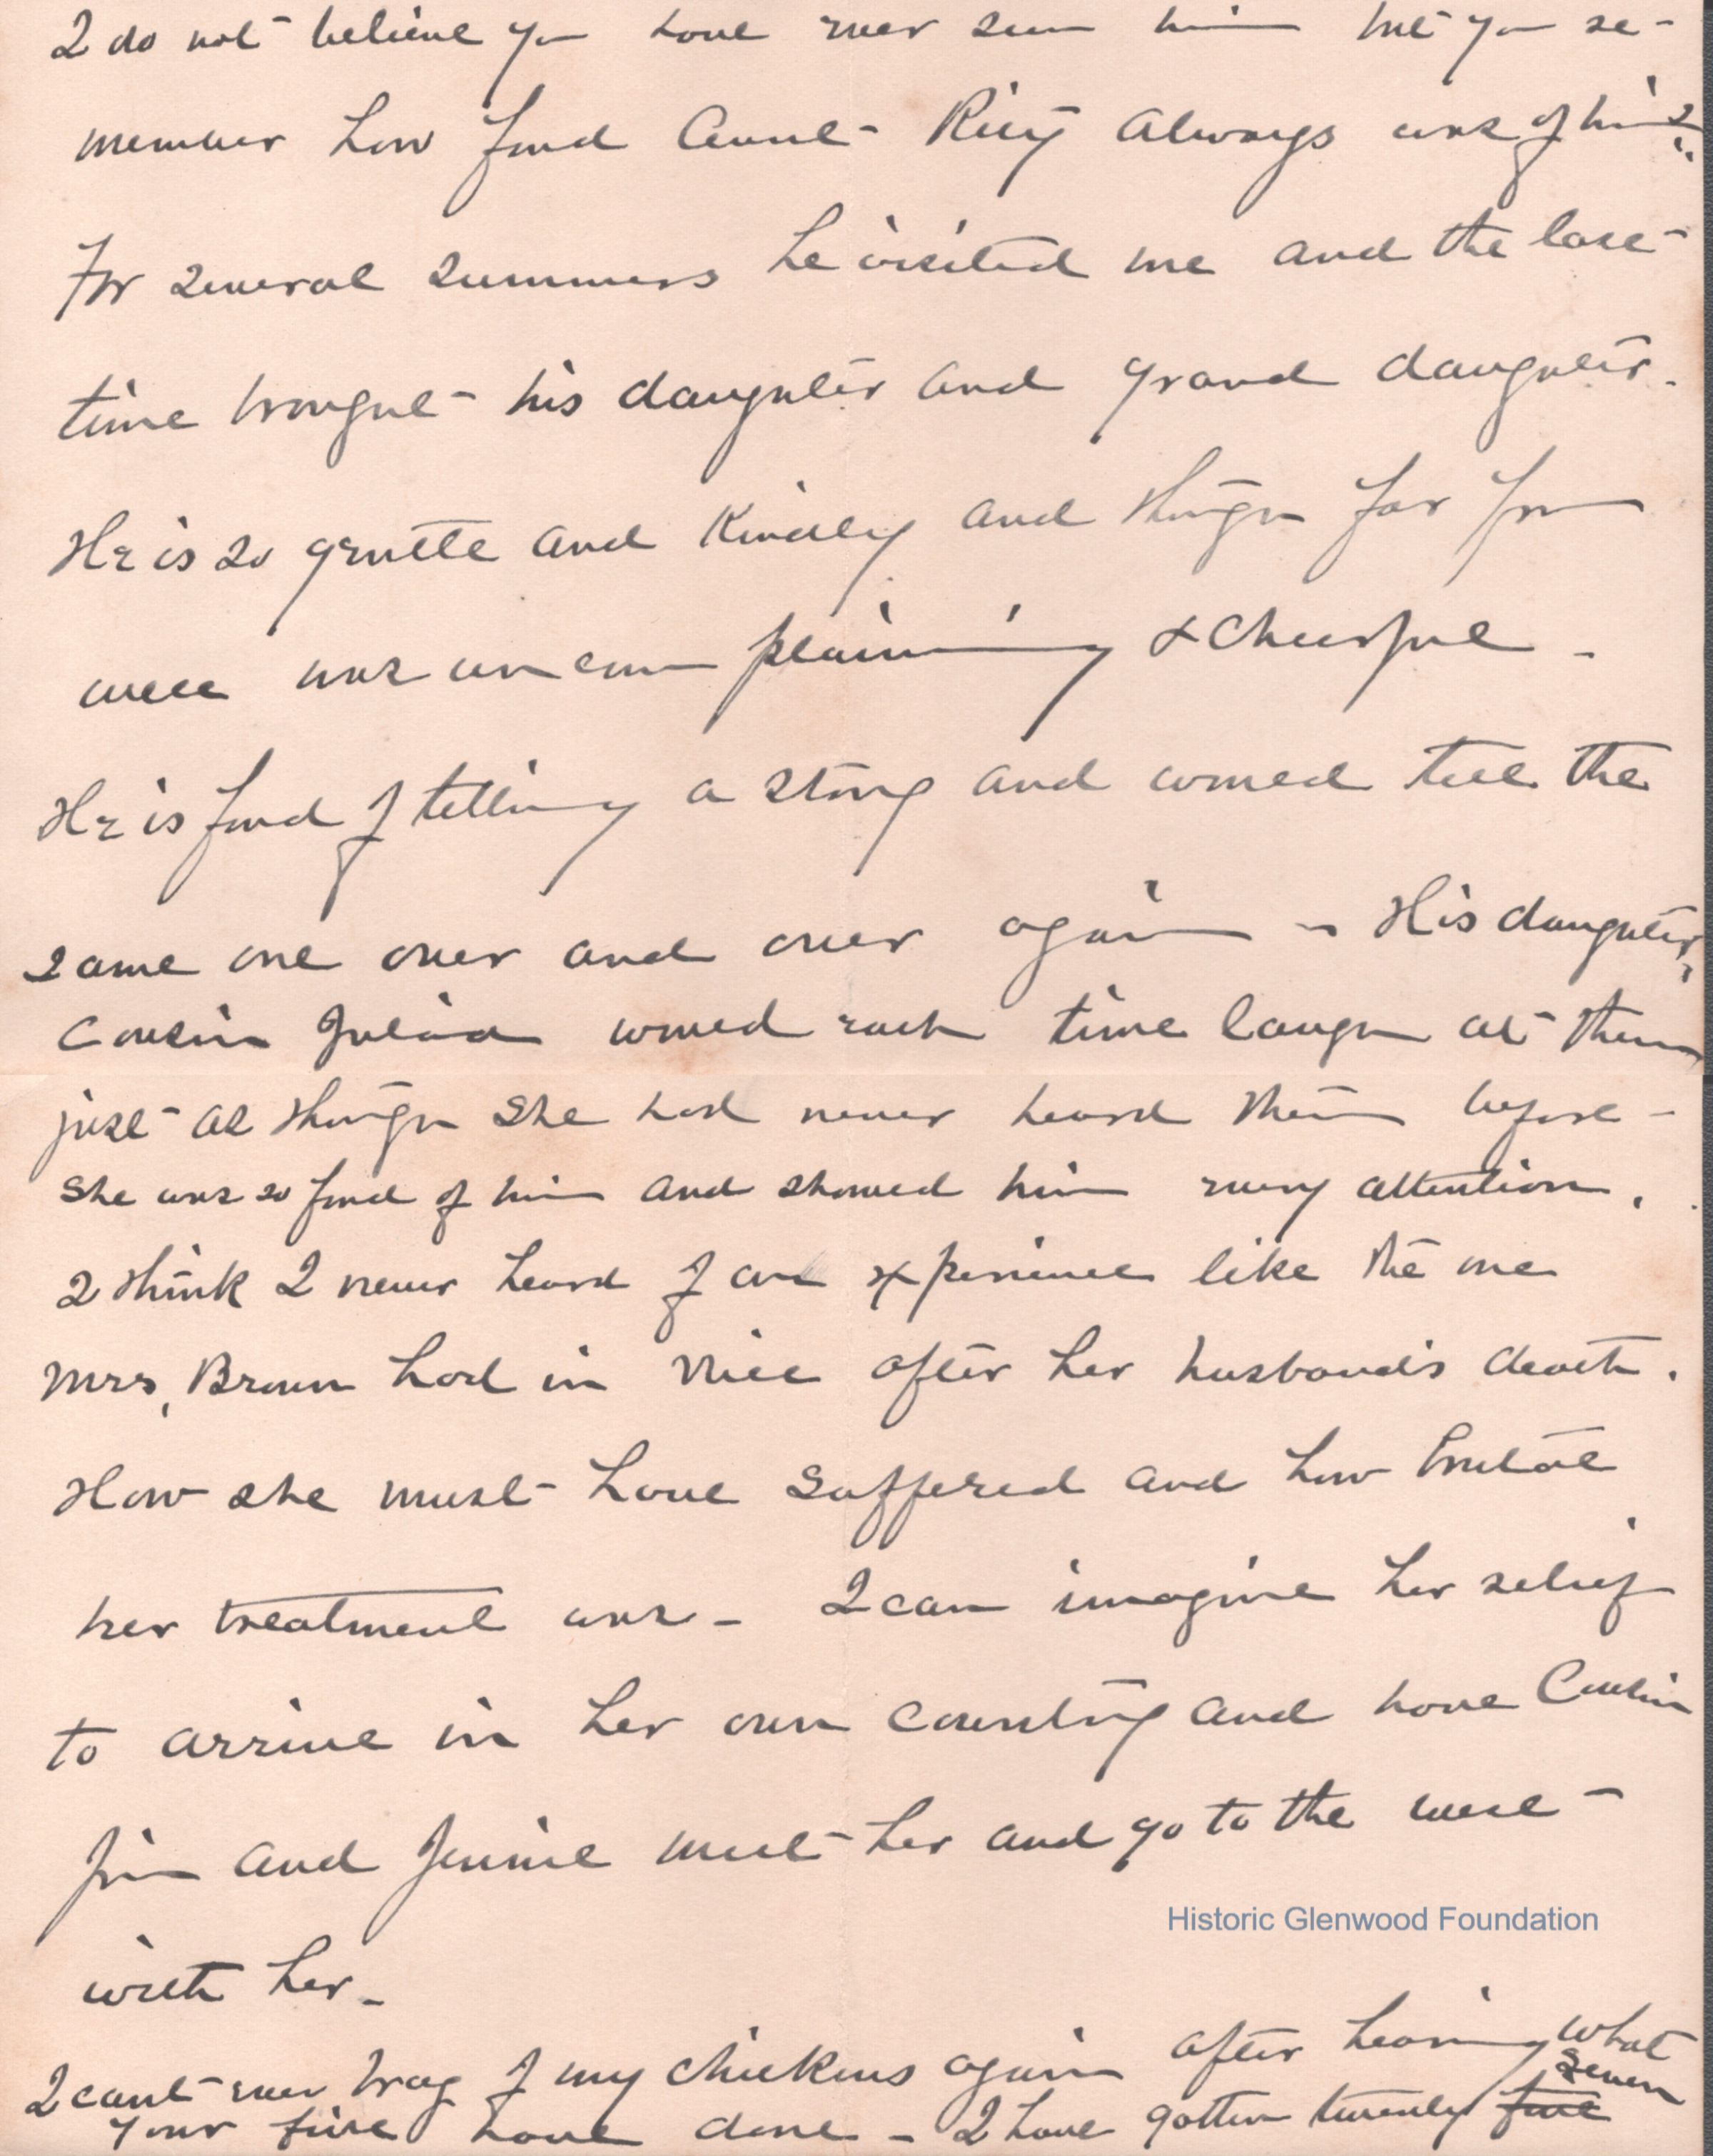 I do not believe you have ever seen him but you re-
member how fond Aunt Kity always was of him?
For several summers he visited me and the last
time brought his daughter and grand daughter.
He is so gentle and kindly and though far from
well was uncomplaining & cheerful -
He is fond of telling a story and would tell the
same one over and over again - His daughter,
Cousin Julia would each time laugh at them
just as though she had never heard them before -
She was so fond of him and showed him every attention.
I think I never heard of an experience like the one
Mrs. Brown had in Nice after her husband's death.
How she must have suffered and how brutal
her treatment was - I can imagine her relief
to arrive in her own country and have Cousin
Jim and Jennie meet her and go to the west
with her -
Historic Glenwood Foundation
I cant ever brag of my chickens again after hearing what
your five have done - I have gotten twenty five seven